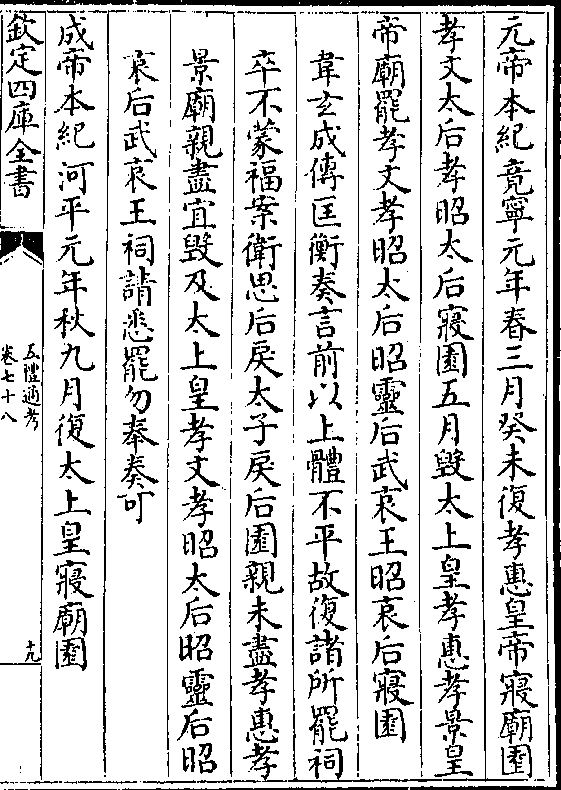 元帝本紀竟寧元年春三月癸未復孝惠皇帝寢廟園
孝文太后孝昭太后寢園五月毀太上皇孝惠孝景皇
帝廟罷孝文孝昭太后昭靈后武哀王昭哀后寢園
韋玄成傳匡衡奏言前以上體不平故復諸所罷祠
卒不蒙福案衛思后戾太子戾后園親未盡孝惠孝
景廟親盡宜毀及太上皇孝文孝昭太后昭靈后昭
哀后武哀王祠請悉罷勿奉奏可
成帝本紀河平元年秋九月復太上皇寢廟園
欽定四庫全書
五禮通考
卷七十八
十九